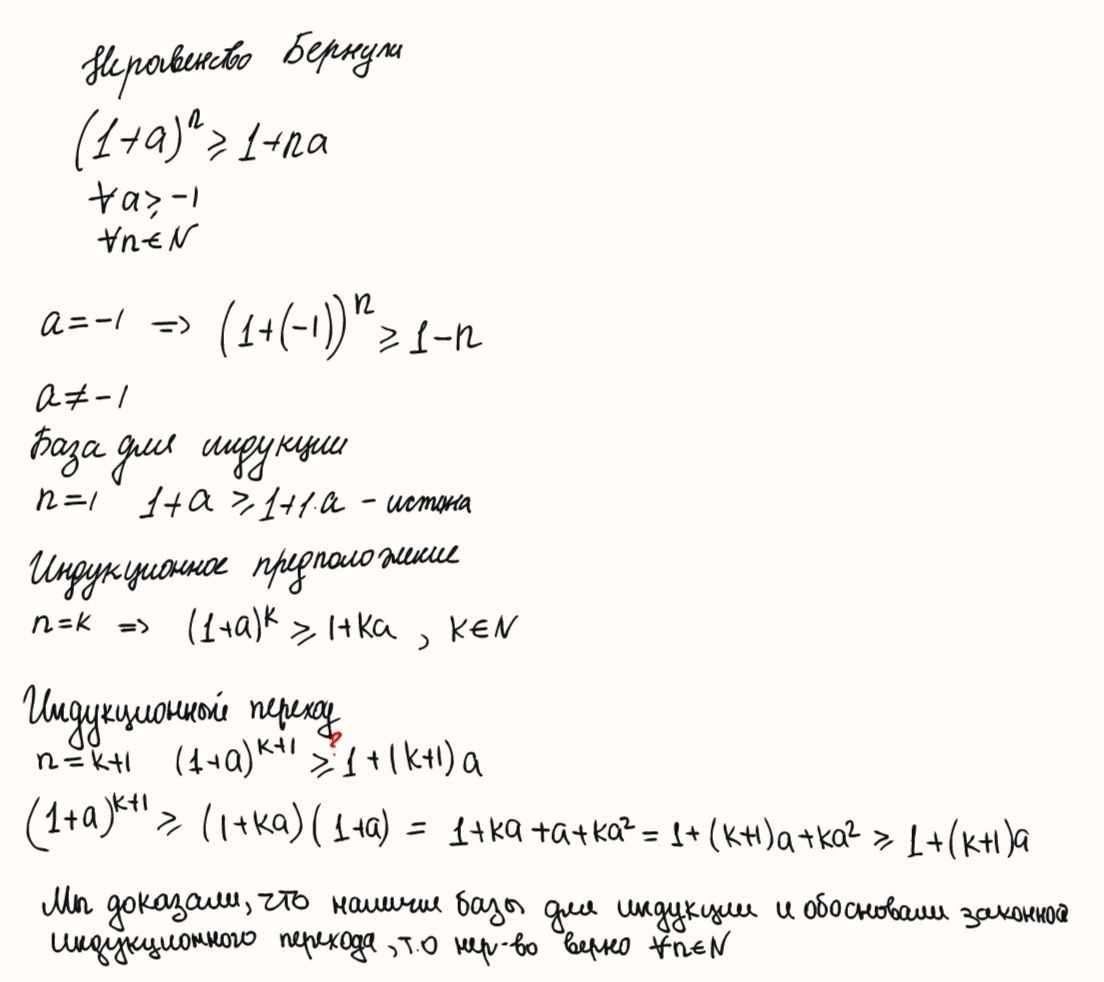 Неравенство Бернули
(1+a)ⁿ ⩾ 1+na
∀a ⩾ -1
∀n∈N
a=-1 => (1+(-1))ⁿ ⩾ 1-n
a≠-1
База для индукции
n=1 1+a ⩾ 1+1·a - истина
Индукционное предположение
n=k => (1+a)ᵏ ⩾ 1+ka , k∈N
Индукционный переход
n=k+1 (1+a)ᵏ⁺¹ ⩾? 1+(k+1)a
(1+a)ᵏ⁺¹ ⩾ (1+ka)(1+a) = 1+ka+a+ka² = 1+(k+1)a+ka² ⩾ 1+(k+1)a
Мы доказали, что наличие базы для индукции и обосновали законной
индукционного перехода, т.о нер-во верно ∀n∈N